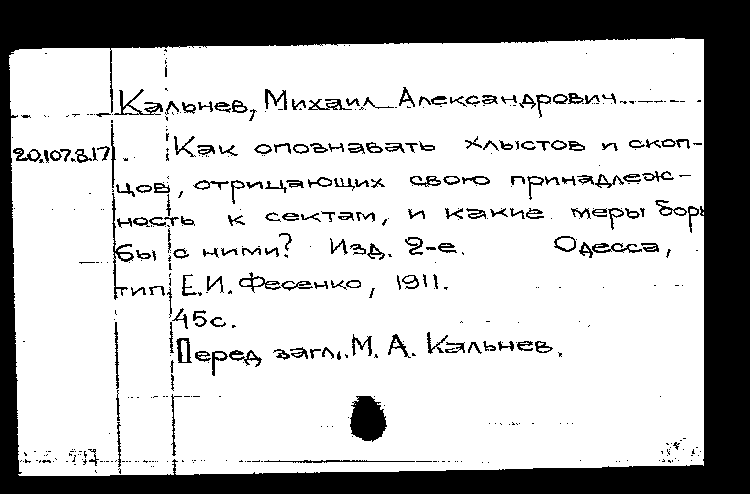 Кальнев, Михаил Александрович.
20.107.8.17. Как опознавать хлыстов и скоп-
цов, отрицающих свою принадлеж-
ность к сектам, и какие меры борь
бы с ними? Изд. 2-е. Одесса,
тип. Е.И. Фесенко, 1911.
45с.
Перед загл.: М. А. Кальнев.